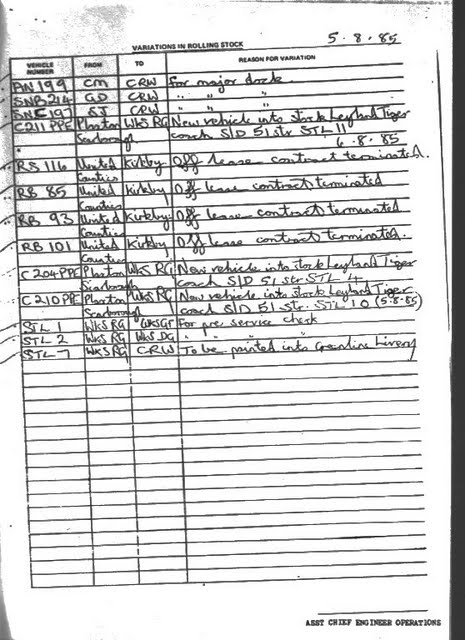 5.8.85
VARIATIONS IN ROLLING STOCK
VEHICLE NUMBER FROM TO REASON FOR VARIATION
AN 199 CM CRW For major dock.
SNB 214 GD CRW " " "
SNC 197 SJ CRW " " "
C211 PPE Plaxton WKS RG New vehicle into stock Leyland Tiger
Scarborough coach S/D 51 str STL 11
6.8.85
RS 116 United Kirkby Off lease contract terminated.
Counties
RB 85 United Kirkby Off lease contract terminated
Counties
RB 93 United Kirkby Off lease contract terminated
Counties
RB 101 United Kirkby Off lease contract terminated.
Counties
C204 PPE Plaxton WKS RG New vehicle into stock Leyland Tiger
Scarborough coach S/D 51 str STL 4
C210 PPE Plaxton WKS RG New vehicle into stock Leyland Tiger
Scarborough coach S/D 51 str. STL 10 (5.8.85)
STL 1 WKS RG WKS GF For pre service check
STL 2 WKS RG WKS DG " " "
STL 7 WKS RG CRW To be painted into Greenline Livery
ASST CHIEF ENGINEER OPERATIONS